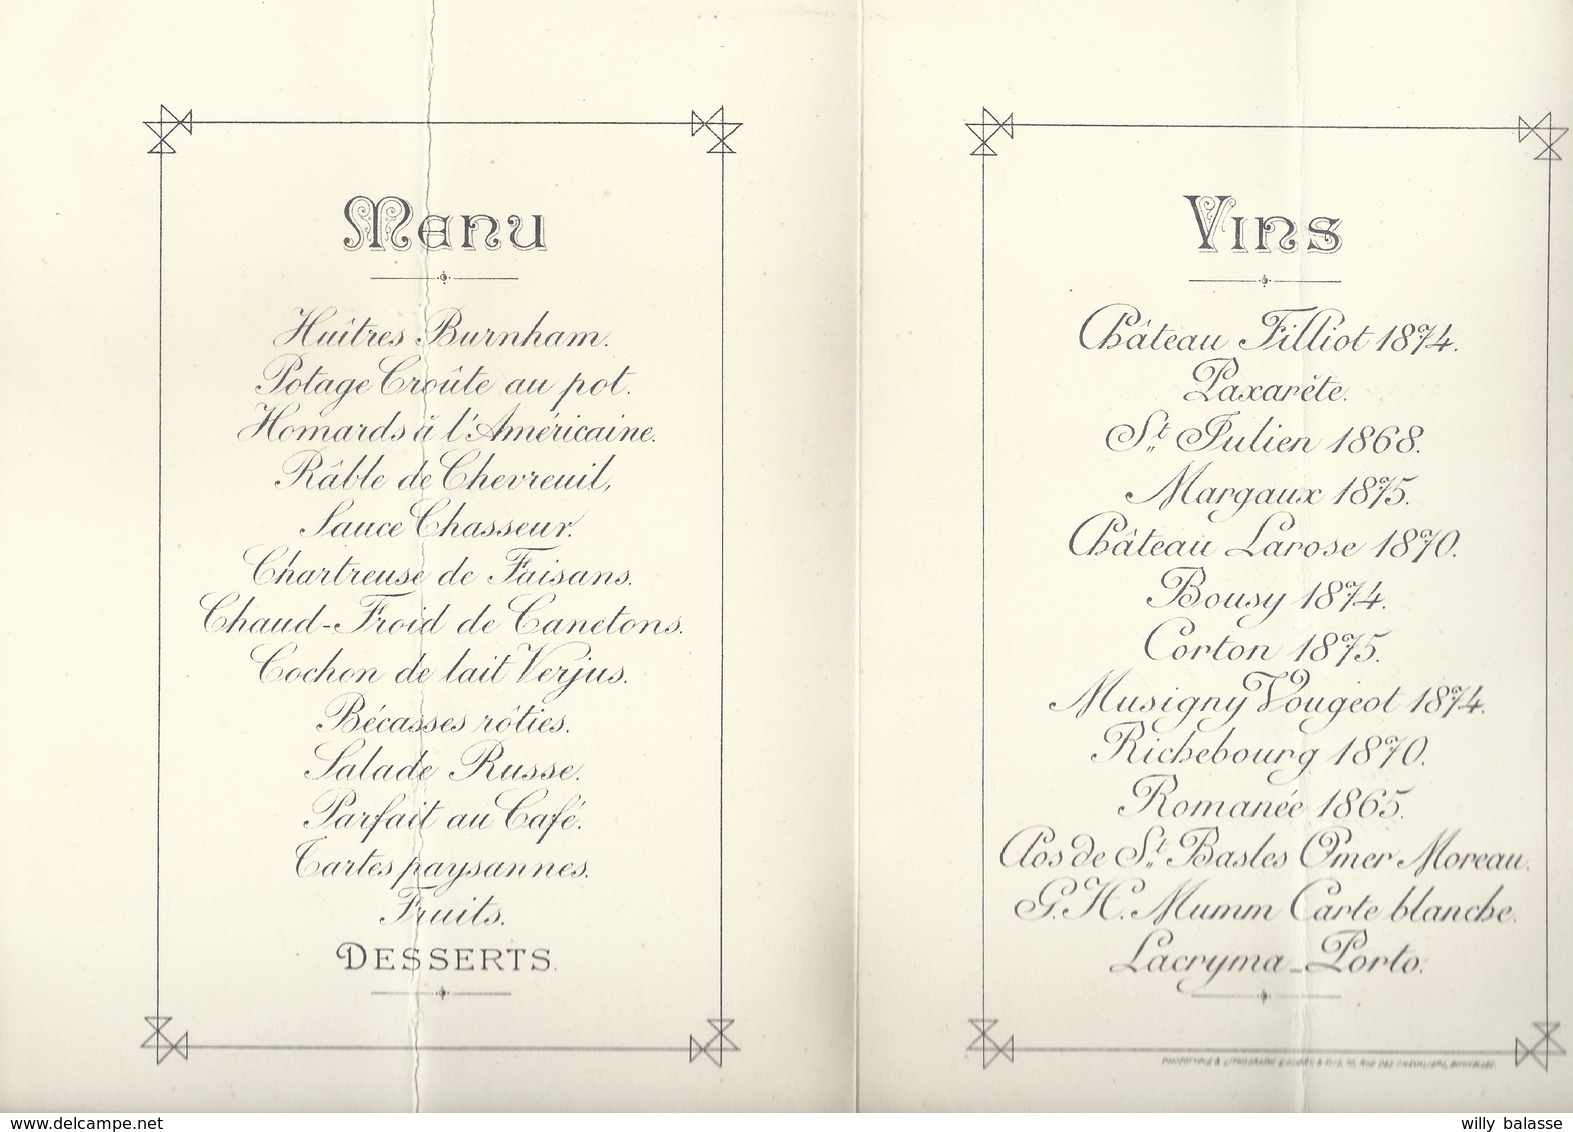 Menu
Huîtres Burnham.
Potage Croûte au pot.
Homards à l'Américaine.
Râble de Chevreuil,
Sauce Chasseur.
Chartreuse de Faisans.
Chaud-Froid de Canetons.
Cochon de lait Verjus.
Bécasses rôties.
Salade Russe.
Parfait au Café.
Tartes paysannes.
Fruits.
DESSERTS.
Vins
Château Filliot 1874.
Paxarète.
St. Julien 1868.
Margaux 1875.
Château Larose 1870.
Bousy 1874.
Corton 1875.
Musigny Vougeot 1874.
Richebourg 1870.
Romanée 1865.
Clos de St. Basles Omer Moreau.
G. H. Mumm Carte blanche.
Lacryma-Porto.
PHOTOTYPIE & LITHOGRAPHIE RUE DES CHEVALIERS, BRUXELLES.
delcampe.net
willy balasse